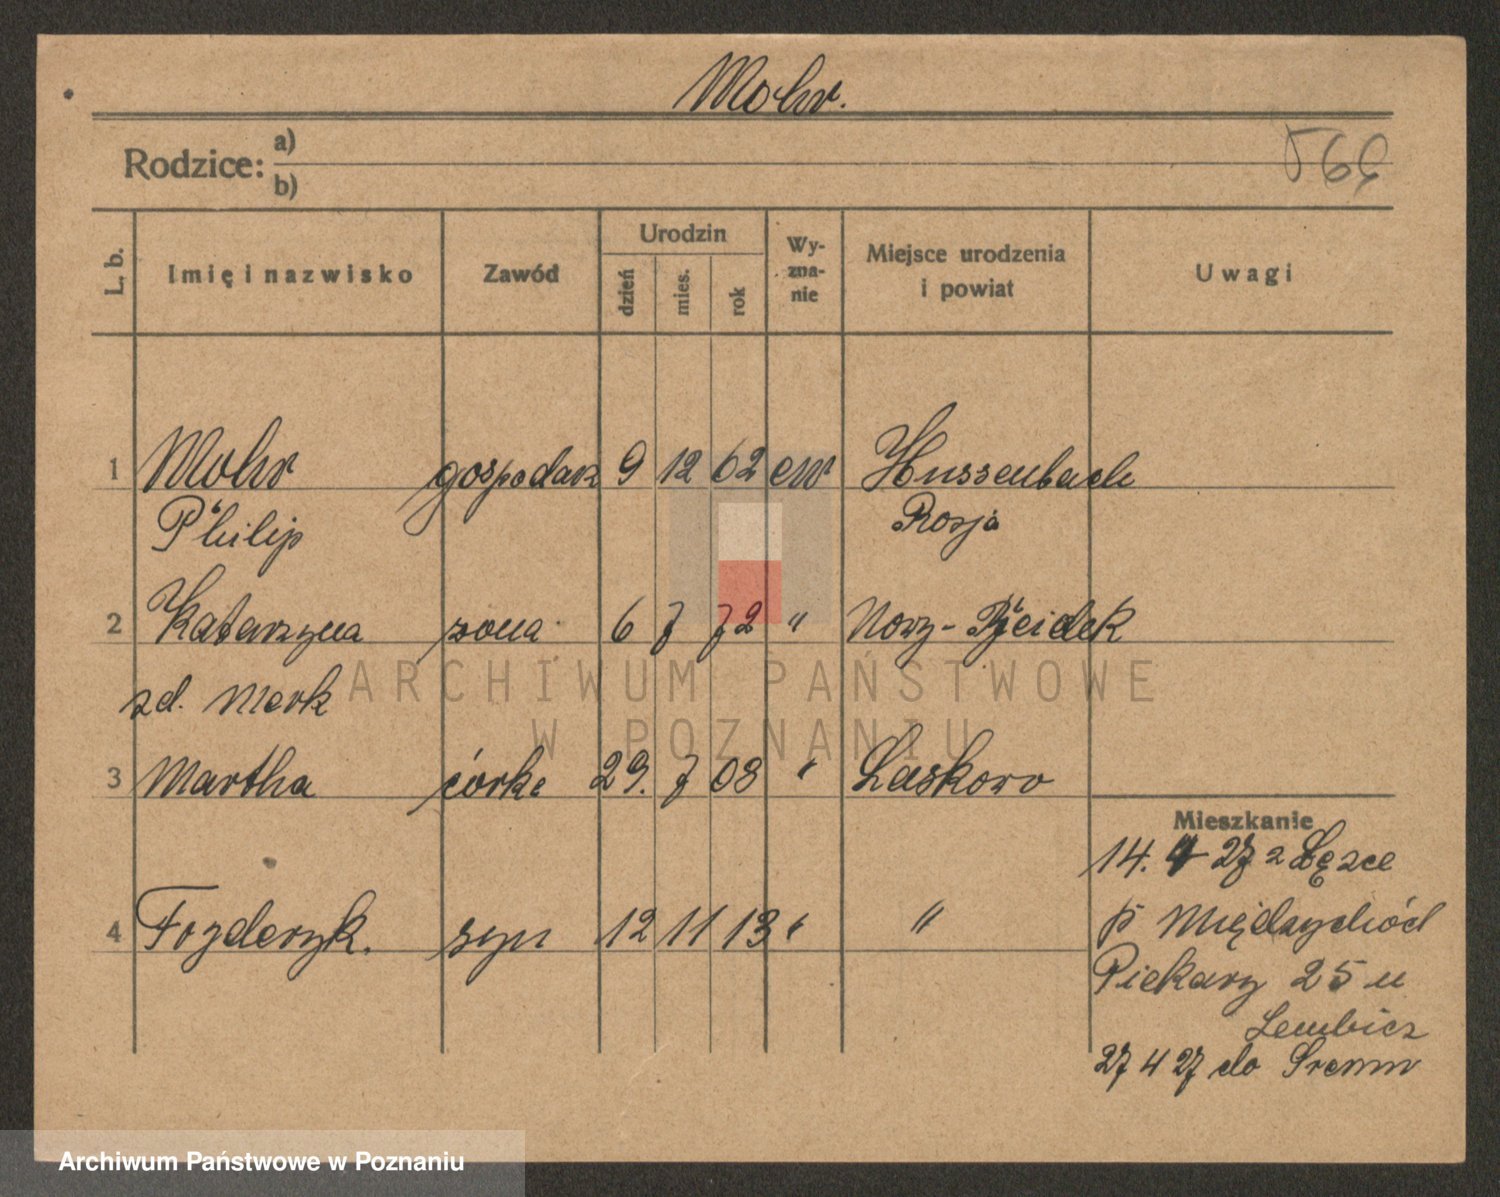 Mohr.
Rodzice: a)
b)
569
L. b.
Imię i nazwisko
Zawód
Urodzin
dzień
mies.
rok
Wy-
zna-
nie
Miejsce urodzenia
i powiat
Uwagi
1 Mohr gospodarz 9 12 62 ew Hussenbach
Philip Rosja
2 Katarzyna żona 6 7 72 " Nowy-
zd. Merk
3 Martha córka 29. 7 08 " Laskowo
4 Fryderyk. syn 12 11 13 " "
Mieszkanie
14. 4 27 z Łężce
p Międzychód
Piekary 25 u
Lembicz
27 4 27 do Śremu
ARCHIWUM PAŃSTWOWE
W POZNANIU
Archiwum Państwowe w Poznaniu